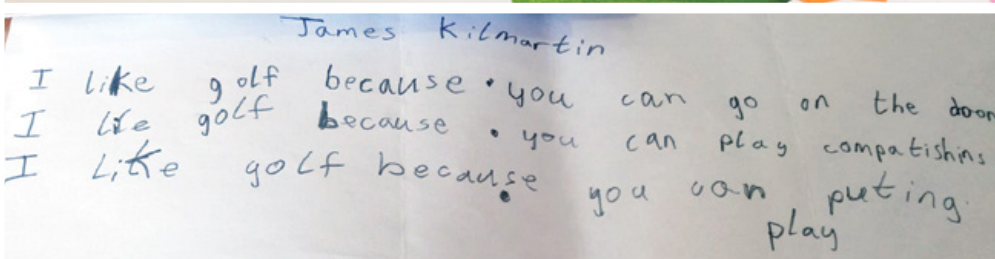 James Kilmartin
I like golf because. you can go on the door
I lie golf because. you can play compatishins
I Like golf because. you can puting.
play